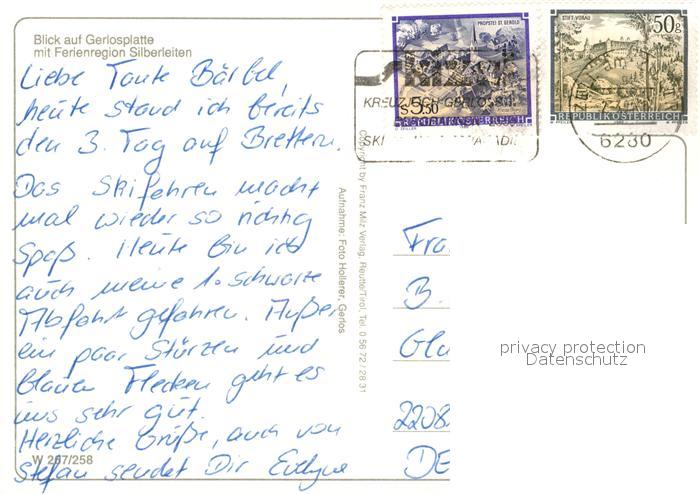 Blick auf Gerlosplatte
mit Ferienregion Silberleiten
Liebe Tante Bärbel,
heute stand ich bereits
den 3. Tag auf Brettern.
Das Skifahren macht
mal wieder so richtig
Spaß. Heute bin ich
auch meine 1. schwarze
Abfahrt gefahren. Außer
ein paar Stürzen und
blauen Flecken geht es
uns sehr gut.
Herzliche Grüße, auch von
Stefan sendet Dir Evelyne
W 267/258
Copyright by Franz Milz Verlag, Reutte/Tirol, Tel. 0 56 72 / 28 31
Aufnahme: Foto Hollerer, Gerlos
PROPSTEI ST. GEROLD
S 5.50
REPUBLIK ÖSTERREICH
STIFT VORAU
50g
REPUBLIK ÖSTERREICH
6280
Fra
B.
Gla
2208
DE
privacy protection
Datenschutz